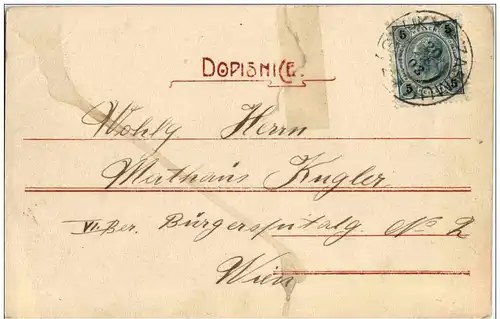 DOPISNICE.
5 5
5 5
Wohlg Herrn
Mathäus Kugler
VI. Ber. Bürgerspitalg No 2
Wien